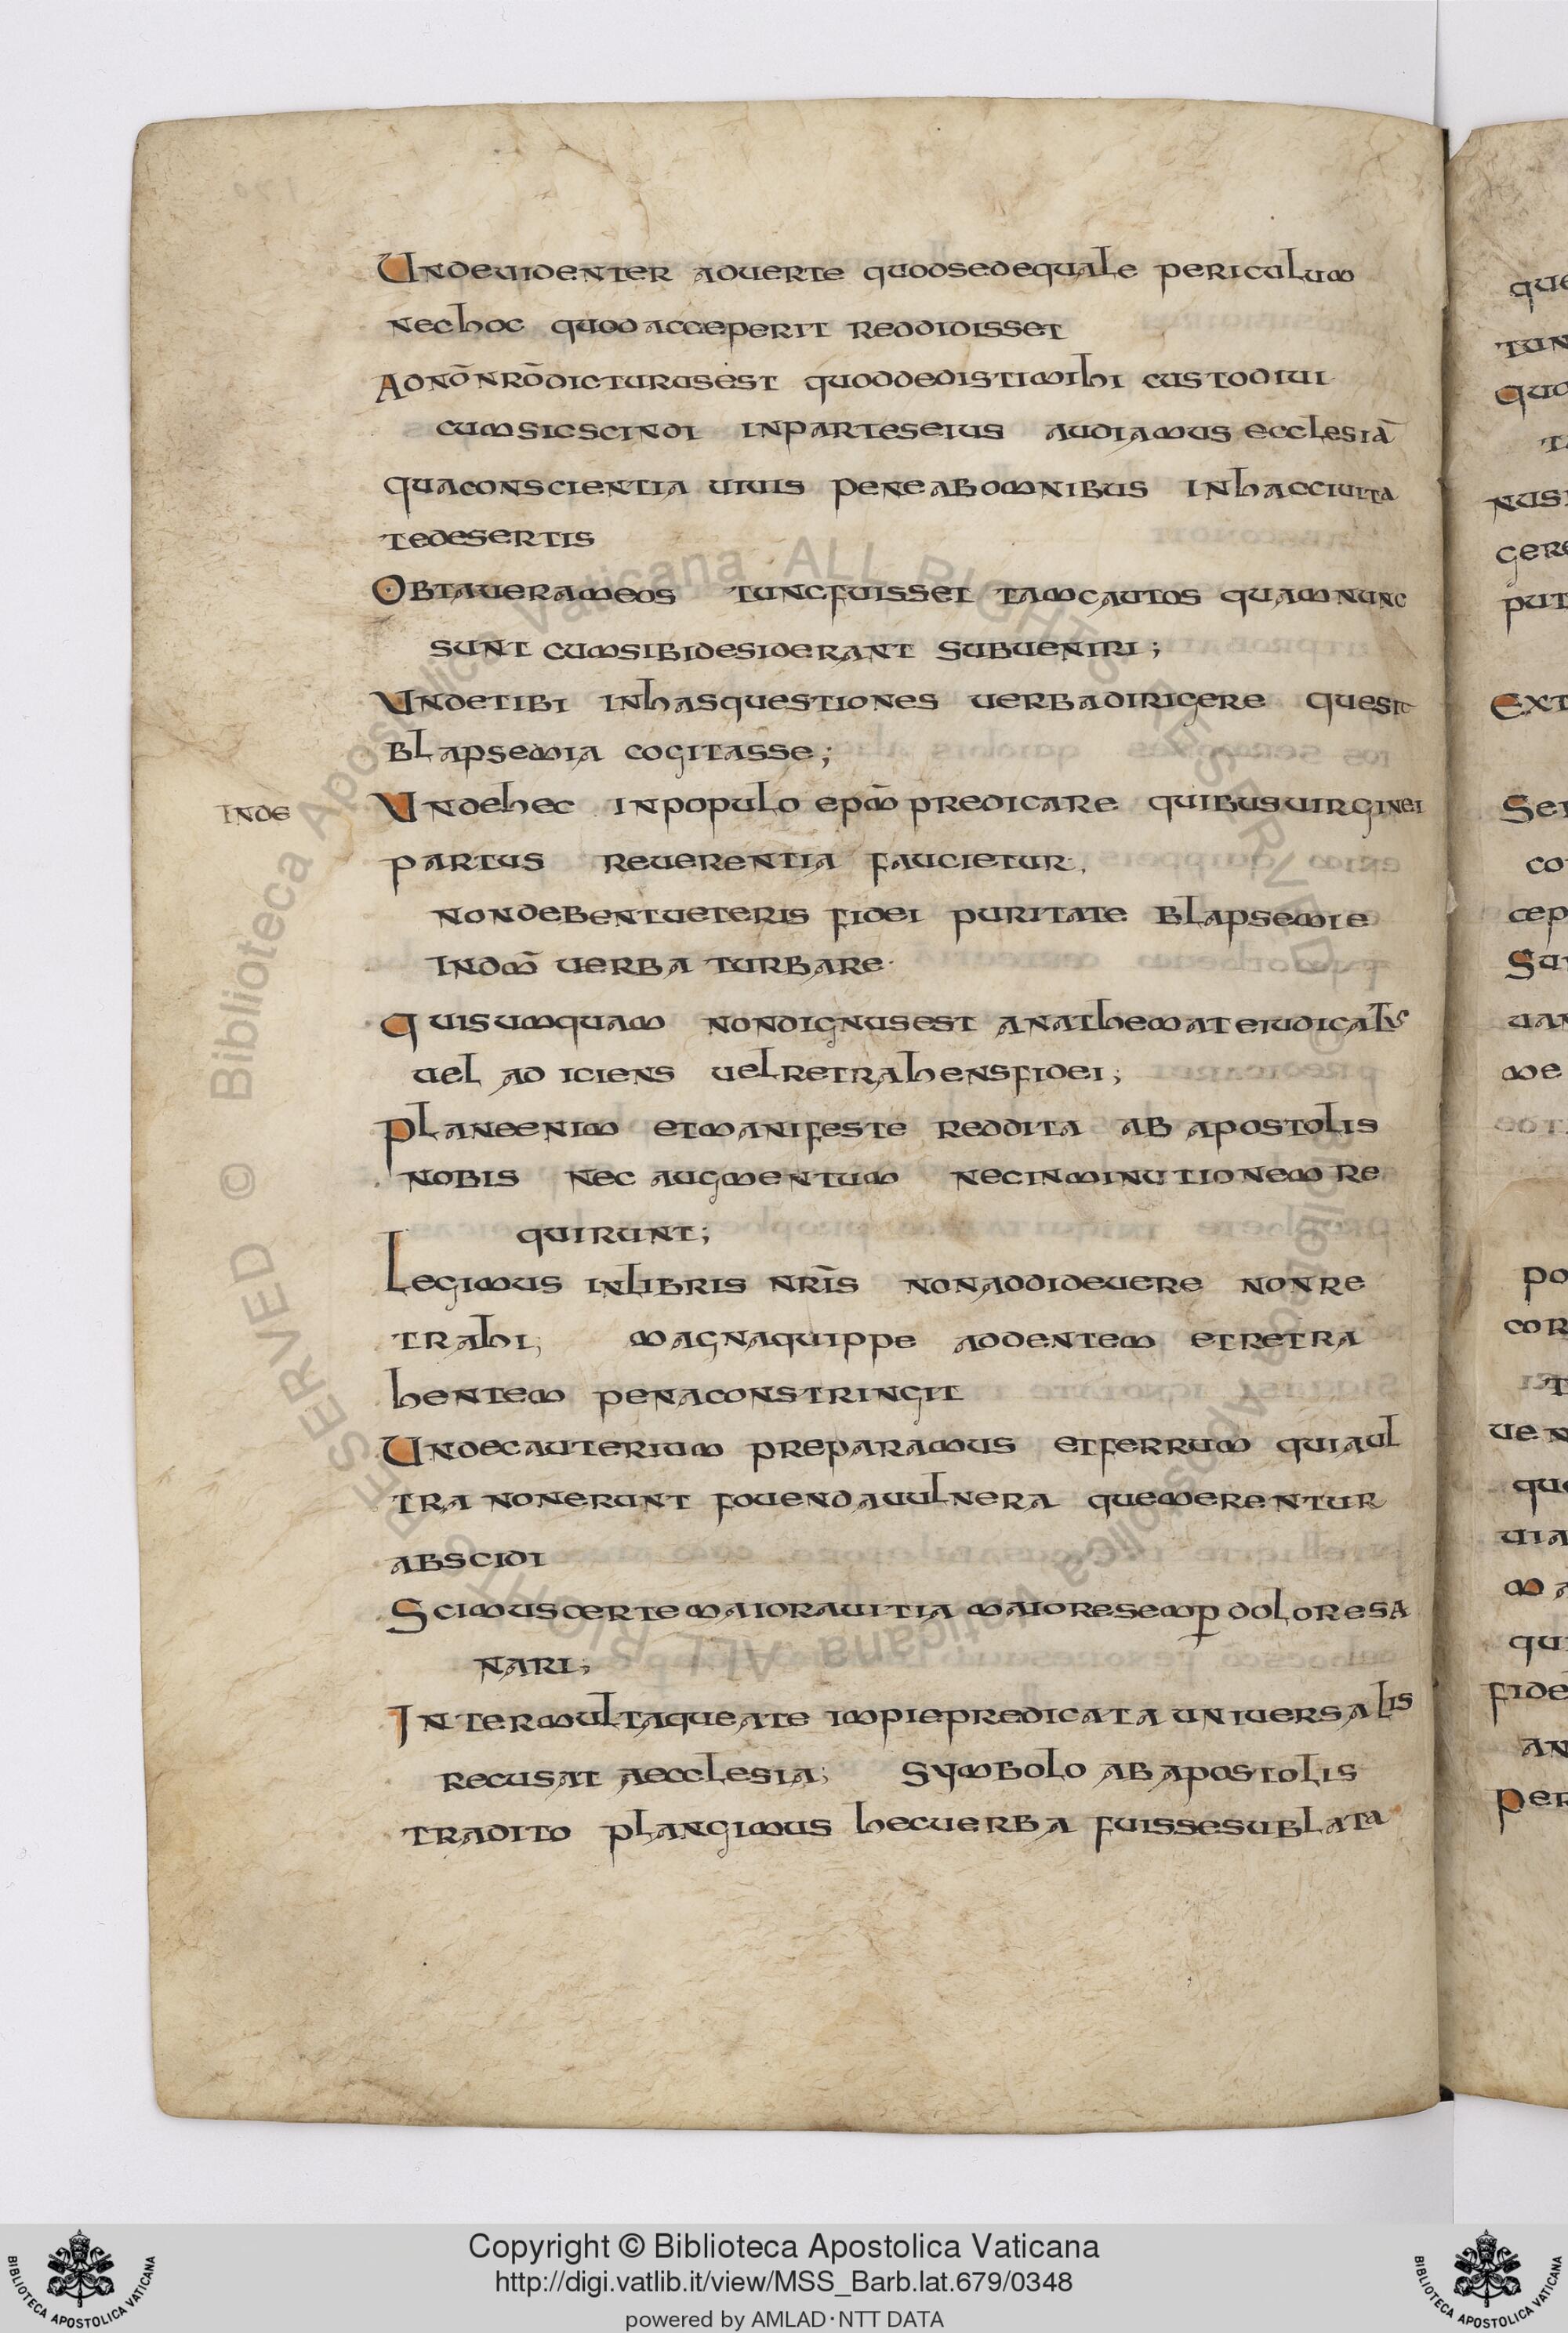 Undeuidenter aduerte quodsedequale periculum
nechoc quod acceperit reddidisset
Adnō nrōdicturusest quoddedistimihi custodiui
cumsicscindi inparteseius audiamus ecclesiā
quaconscientia uiuis peneabomnibus inhacciuita
tedesertis
Obtauerameos tuncfuisset tamcautos quamnunc
sunt cumsibidesiderant subueniri;
Undetibi inhasquestiones uerbadirigere quesit
blapsemia cogitasse;
inde
Undehec inpopulo epm̄ predicare quibusuirginei
partus reuerentia faucietur.
nondebentueteris fidei puritate blapsemie
indm̄ uerba turbare·
Quisumquam nondignusest anathemateiudicatus
uel ad iciens uelretrahensfidei;
Planeenim etmanifeste reddita ab apostolis
nobis nec augmentum necinminutionem re
quirunt;
Legimus inlibris nrīs nonaddideuere nonre
trahi; magnaquippe addentem etretra
hentem penaconstringit
Undecauterium preparamus etferrum quiaul
tra nonerunt fouendauulnera quemerentur
abscidi
Scimuscertemaiorauitia maioresemp doloresa
nari;
Intermultaqueate impiepredicata uniuersalis
recusat aecclesia; Symbolo abapostolis
tradito plangimus hecuerba fuissesublata
Copyright © Biblioteca Apostolica Vaticana
http://digi.vatlib.it/view/MSS_Barb.lat.679/0348
powered by AMLAD·NTT DATA
BIBLIOTECA APOSTOLICA VATICANA
BIBLIOTECA APOSTOLICA VATICANA